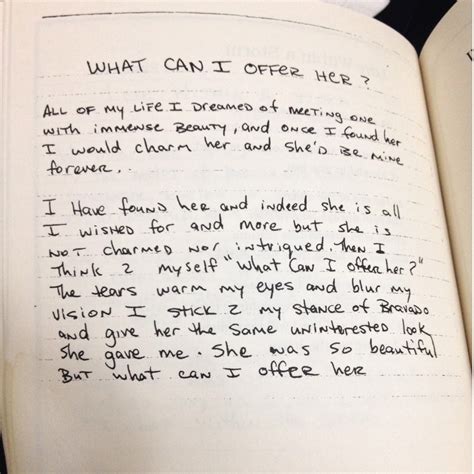 WHAT CAN I OFFER HER?
ALL OF MY LIFE I DREAMED OF MEETING ONE
WITH IMMENSE BEAUTY, AND ONCE I FOUND HER
I WOULD CHARM HER AND SHE'D BE MINE
FOREVER.
I HAVE FOUND HER AND INDEED SHE IS ALL
I WISHED FOR AND MORE BUT SHE IS
NOT CHARMED NOR INTRIGUED. THEN I
THINK 2 MYSELF "WHAT CAN I OFFER HER?"
THE TEARS WARM MY EYES AND BLUR MY
VISION I STICK 2 MY STANCE OF BRAVADO
AND GIVE HER THE SAME UNINTERESTED LOOK
SHE GAVE ME. SHE WAS SO BEAUTIFUL
BUT WHAT CAN I OFFER HER